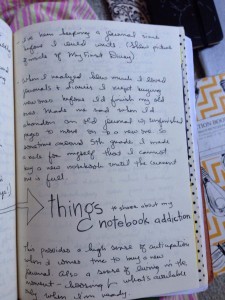 I've been keeping a journal since
before I could write (Show picture
inside of My First Diary)
When I realized how much I loved
journals & diaries I kept buying
new ones before I'd finish my old
ones. It made me sad when I'd
abandon an old journal w/ unfinished
pages to move on to a new one. So
sometime around 5th grade I made
a rule for myself that I cannot
buy a new notebook until the current
one is full
things
to share about my
notebook addiction
this provides a high sense of anticipation
when it comes time to buy a new
journal. also a sense of living in the
moment - choosing what's available
only when I'm ready